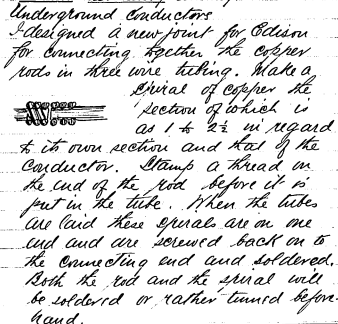 Underground conductors
I designed a new joint for Edison
for connecting together the copper
rods in three wire tubing. Make a
spiral of copper the
section of which is
as 1 to 2½ in regard
to its own section and that of the
conductor. Stamp a thread on
the end of the rod before it is
put in the tube. When the tubes
are laid these spirals are on one
end and are screwed back on to
the connecting end and soldered.
Both the rod and the spiral will
be soldered or rather tinned before-
hand.